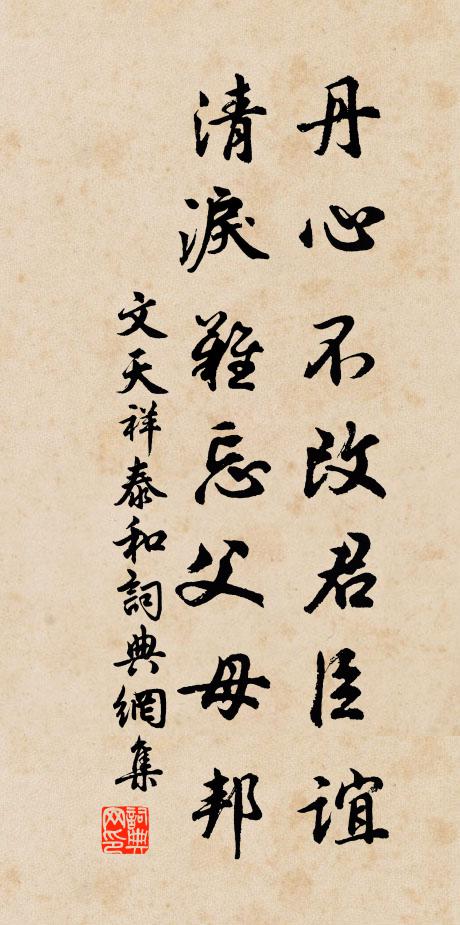 丹心不改君臣誼
清淚難忘父母邦
文天祥泰和詞典網集
詞典网印